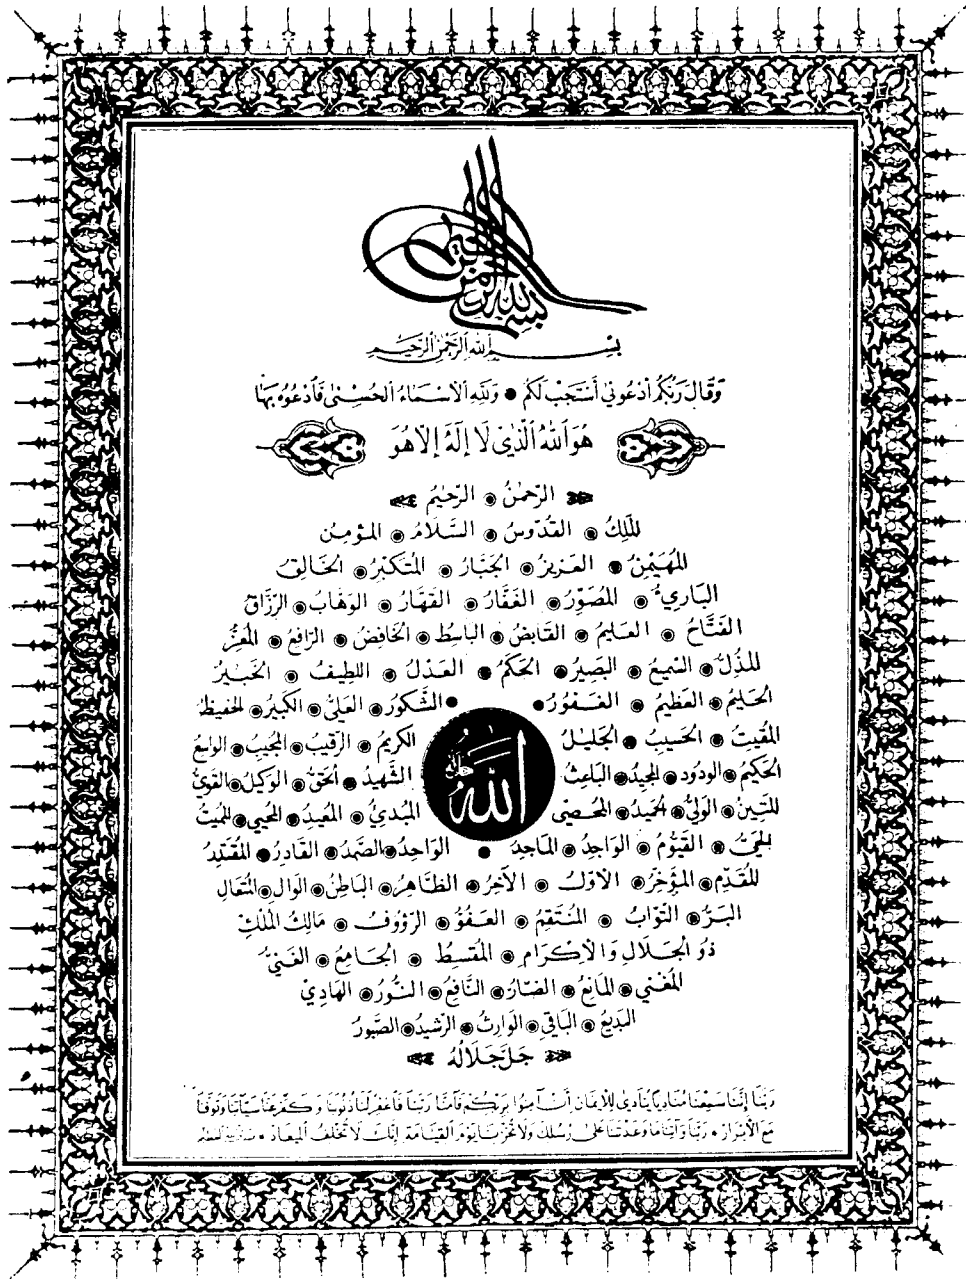 بسم الله الرحمن الرحيم
بِسْمِ اللهِ الرَّحْمٰنِ الرَّحِيمِ
وَقَالَ رَبُّكُمُ ادْعُونِي أَسْتَجِبْ لَكُمْ • وَلِلّٰهِ الْاَسْمَاءُ الْحُسْنٰى فَادْعُوهُ بِهَا
هُوَ اللهُ الَّذِي لَا إِلٰهَ إِلَّا هُوَ
الرَّحْمٰنُ • الرَّحِيمُ
المَلِكُ • القُدُّوسُ • السَّلَامُ • المُؤْمِنُ
المُهَيْمِنُ • العَزِيزُ • الجَبَّارُ • المُتَكَبِّرُ • الخَالِقُ
البَارِئُ • المُصَوِّرُ • الغَفَّارُ • القَهَّارُ • الوَهَّابُ • الرَّزَّاقُ
الفَتَّاحُ • العَلِيمُ • القَابِضُ • البَاسِطُ • الخَافِضُ • الرَّافِعُ • المُعِزُّ
المُذِلُّ • السَّمِيعُ • البَصِيرُ • الحَكَمُ • العَدْلُ • اللطِيفُ • الخَبِيرُ
الحَلِيمُ • العَظِيمُ • الغَفُورُ • الشَّكُورُ • العَلِيُّ • الكَبِيرُ • الحَفِيظُ
المُقِيتُ • الحَسِيبُ • الجَلِيلُ الكَرِيمُ • الرَّقِيبُ • المُجِيبُ • الوَاسِعُ
الحَكِيمُ • الوَدُودُ • المَجِيدُ • البَاعِثُ الشَّهِيدُ • الحَقُّ • الوَكِيلُ • القَوِيُّ
الله جل جلاله
المَتِينُ • الوَلِيُّ • الحَمِيدُ • المُحْصِي المُبْدِئُ • المُعِيدُ • المُحْيِي • المُمِيتُ
الحَيُّ • القَيُّومُ • الوَاجِدُ • المَاجِدُ • الوَاحِدُ • الصَّمَدُ • القَادِرُ • المُقْتَدِرُ
المُقَدِّمُ • المُؤَخِّرُ • الاَوَّلُ • الآخِرُ • الظَّاهِرُ • البَاطِنُ • الوَالِ • المُتَعَالِ
البَرُّ • التَّوَّابُ • المُنْتَقِمُ • العَفُوُّ • الرَّؤُوفُ • مَالِكُ المُلْكِ
ذُو الجَلَالِ وَالاِكْرَامِ • المُقْسِطُ • الجَامِعُ • الغَنِيُّ
المُغْنِي • المَانِعُ • الضَّارُّ • النَّافِعُ • النُّورُ • الهَادِي
البَدِيعُ • البَاقِي • الوَارِثُ • الرَّشِيدُ • الصَّبُورُ
جَلَّ جَلَالُهُ
رَبَّنَا إِنَّنَا سَمِعْنَا مُنَادِيًا يُنَادِي لِلْاِيمَانِ أَنْ آمِنُوا بِرَبِّكُمْ فَآمَنَّا رَبَّنَا فَاغْفِرْ لَنَا ذُنُوبَنَا وَكَفِّرْ عَنَّا سَيِّئَاتِنَا وَتَوَفَّنَا
مَعَ الْاَبْرَارِ • رَبَّنَا وَآتِنَا مَا وَعَدْتَنَا عَلَى رُسُلِكَ وَلَا تُخْزِنَا يَوْمَ الْقِيَامَةِ إِنَّكَ لَا تُخْلِفُ الْمِيعَادَ •